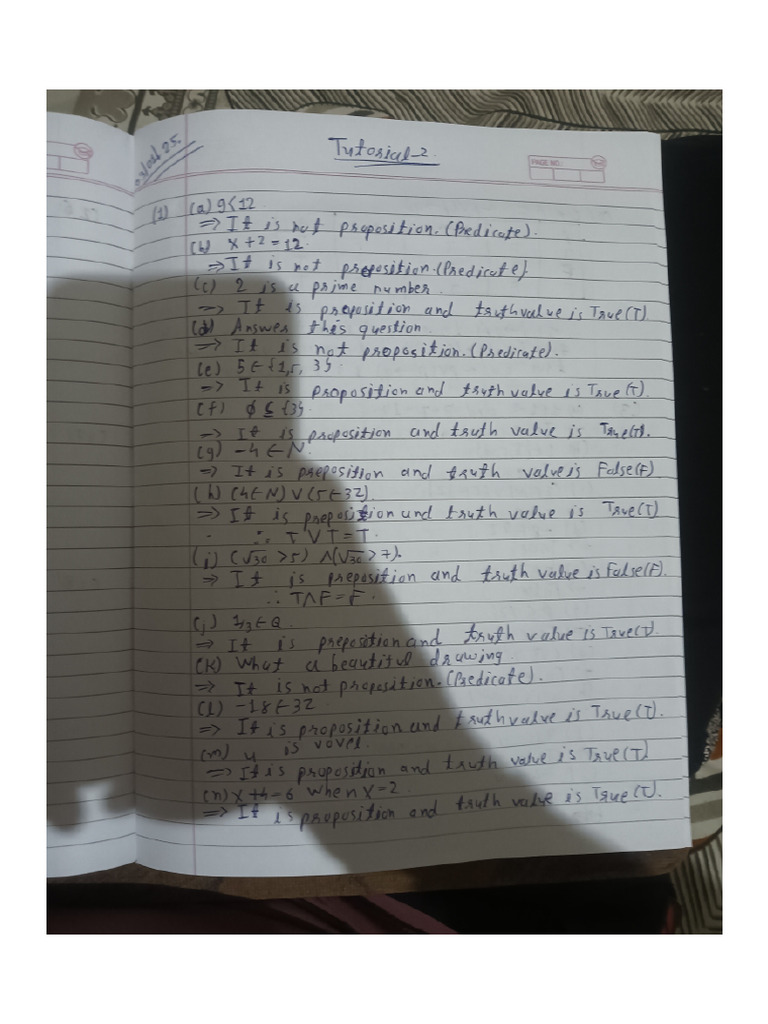 Tutorial-2.
PAGE NO.:
(1) (a) 9<12
=> It is not proposition. (Predicate).
(b) x+2=12.
=> It is not proposition. (Predicate)
(c) 2 is a prime number
=> It is proposition and truth value is True(T)
(d) Answer this question
=> It is not proposition. (Predicate).
(e) 5∈{1,5, 3}
=> It is proposition and truth value is True (T).
(f) ϕ ⊆ {3}
=> It is proposition and truth value is True(T).
(g) -4 ∈ N.
=> It is preposition and truth value is False(F)
(h) (4∈N) V (5∈3Z)
=> It is preposition and truth value is True (T)
∴ T V T = T.
(i) (√30 >5) Λ(√30 >7).
=> It is preposition and truth value is False(F).
∴ TΛF = F.
(j) 1/3 ∈ Q.
=> It is preposition and truth value is True(T).
(k) What a beautiful drawing
=> It is not proposition. (Predicate).
(l) -18 ∈ 3Z
=> It is proposition and truth value is True (T).
(m) u is vovel.
=> It is proposition and truth value is True (T)
(n) x +4=6 when x=2.
=> It is proposition and truth value is True (T).